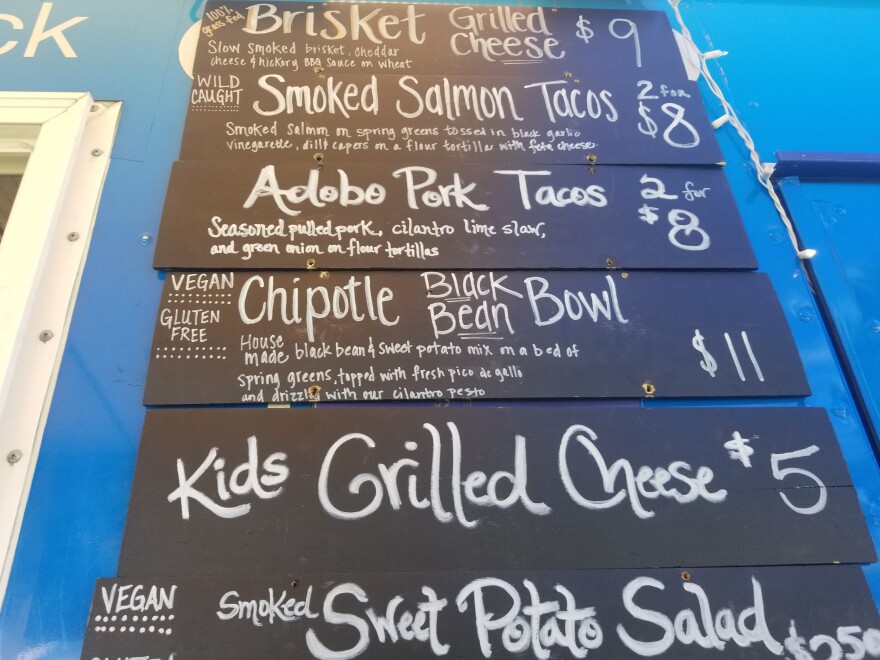 ck
100% grass fed
Brisket Grilled Cheese $9
Slow smoked brisket, cheddar
cheese & hickory BBQ sauce on wheat
WILD CAUGHT
Smoked Salmon Tacos 2 for $8
Smoked Salmon on spring greens tossed in black garlic
vinegarette, dill & capers on a flour tortilla with feta cheese
Adobo Pork Tacos 2 for $8
Seasoned pulled pork, cilantro lime slaw,
and green onion on flour tortillas
VEGAN
GLUTEN FREE
Chipotle Black Bean Bowl $11
House made black bean & sweet potato mix on a bed of
spring greens, topped with fresh pico de gallo
and drizzle with our cilantro pesto
Kids Grilled Cheese $5
VEGAN
Smoked Sweet Potato Salad $2.50